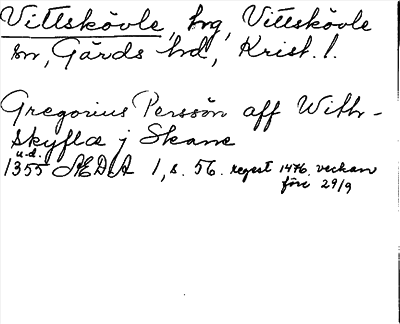 Vittskövle, hrg, Vittskövle
sn, Gärds hd, Krist. l.
Gregorius Persson aff With-
skyflæ j Skane
u.d.
1355 ÆDA 1, s. 56. regest 1476. veckan
före 29/9